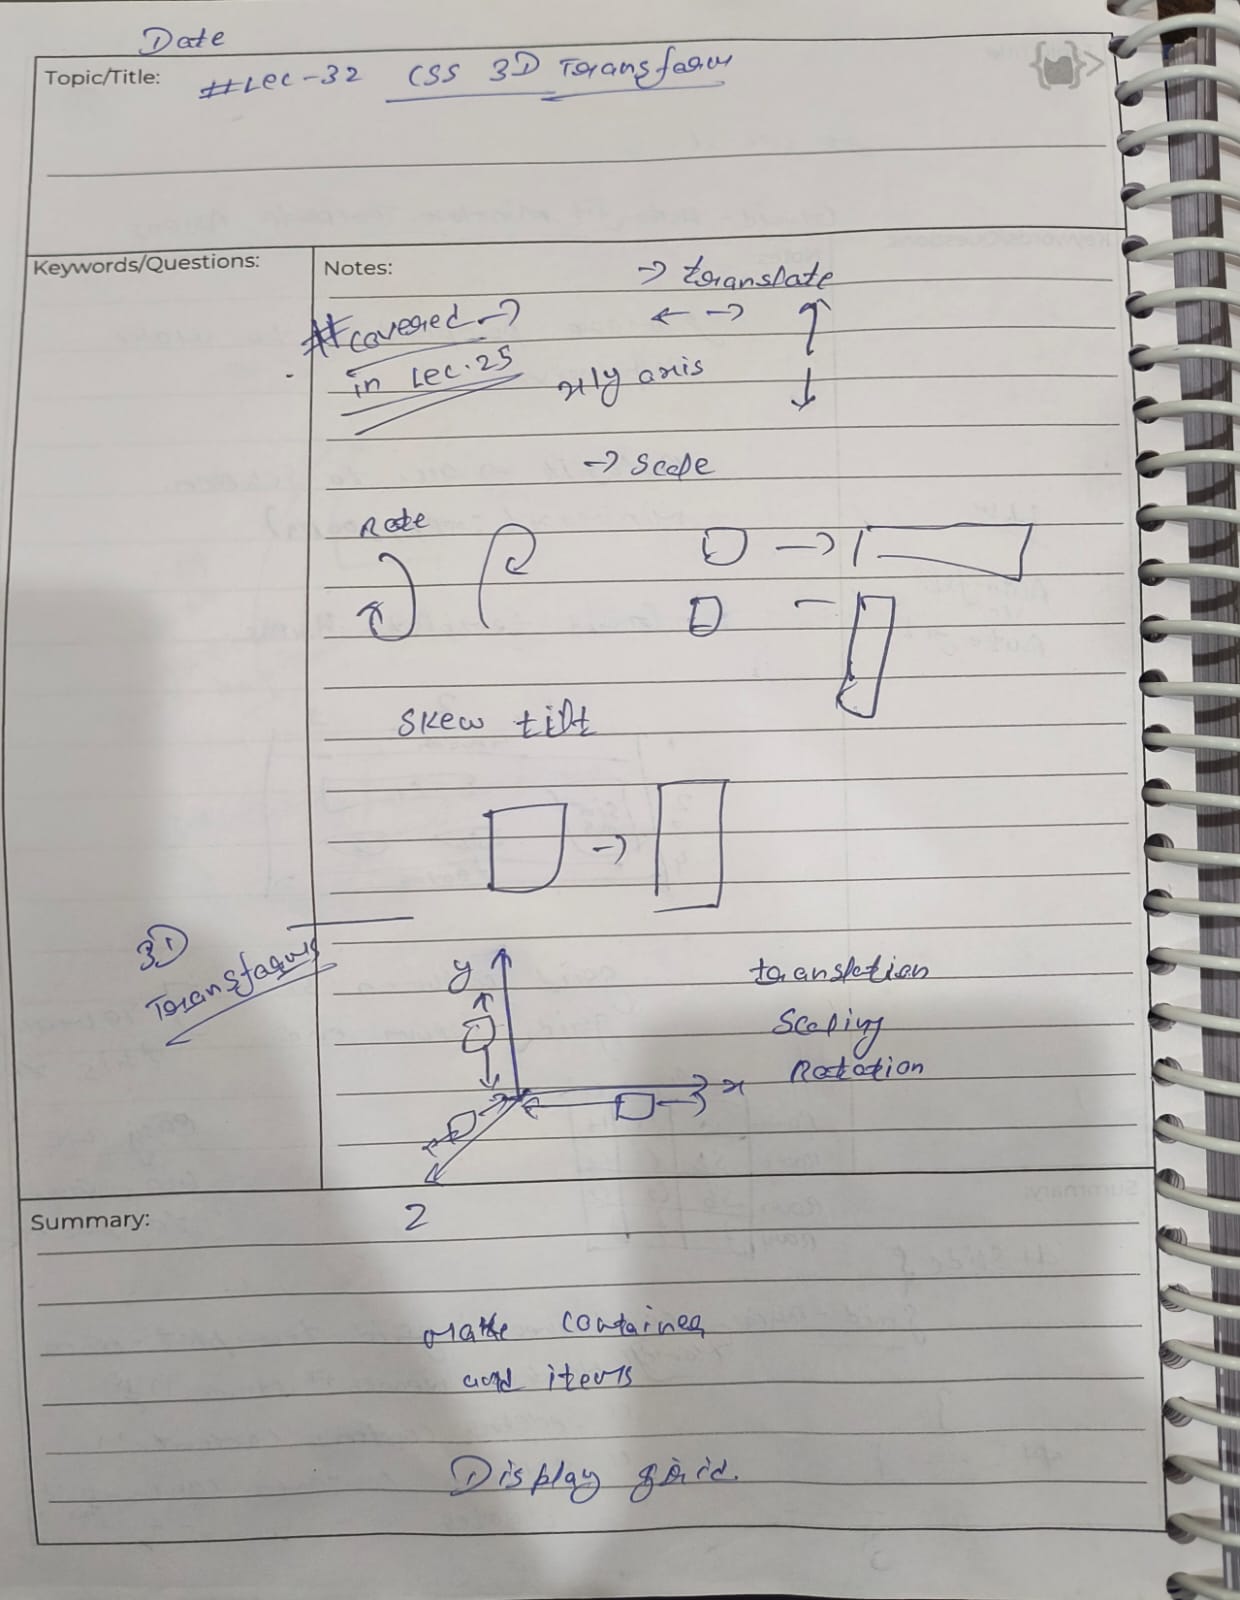 Date
Topic/Title: #Lec-32 CSS 3D Transform
Keywords/Questions:
Notes:
→ translate
#covered →
← →
in Lec.25
x/y axis
→ Scale
Rotate
Skew tilt
3D
Transforms
y
translation
Scaling
Rotation
x
Summary:
Z
make container
and items
Display grid.